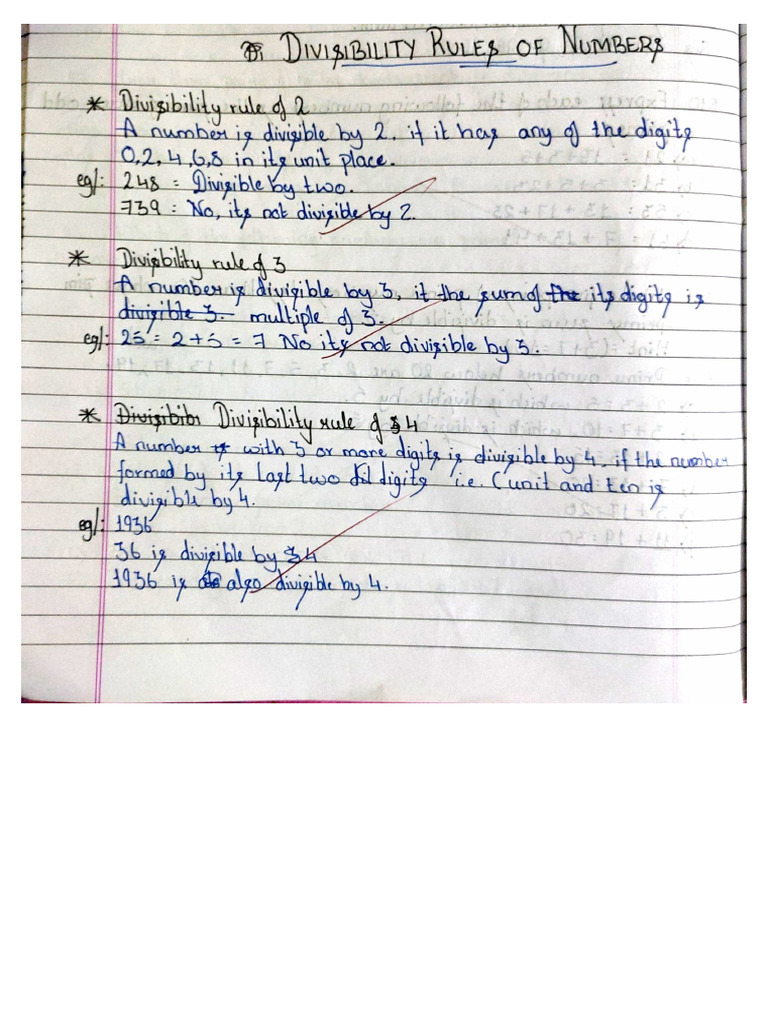 DIVISIBILITY RULES OF NUMBERS
* Divisibility rule of 2
A number is divisible by 2, if it has any of the digits
0,2,4,6,8 in its unit place.
eg/: 248 = Divisible by two.
739 = No, its not divisible by 2.
* Divisibility rule of 3
A number is divisible by 3, it the sum of the its digits is
divisible 3. multiple of 3.
eg/: 25 = 2+5 = 7 No its not divisible by 3.
* Divisibin Divisibility rule of 4
A number is with 3 or more digits is divisible by 4, if the number
formed by its last two digits i.e. (unit and ten is
divisible by 4.
eg/: 1936
36 is divisible by 4
1936 is also divisible by 4.